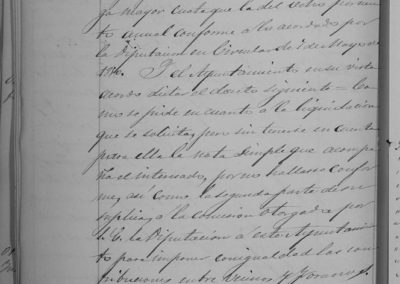 ga mayor cuota que la del ocho por cien
to anual conforme a lo acordado por
la Diputacion en Circular de 1 de Mayo de
Y el Ayuntamiento en su vista
acordó dictar el decreto siguiente = Co
mo se pide en cuanto a la liquidacion
que se solicita, pero sin tenerse en cuenta
para ella la nota simple que acompa
ña el interesado, por no hallarse confor
me, así como la segunda parte de su
suplica, a la concesion otorgada por
S.E. la Diputacion a este Ayuntamien
to para imponer con igualdad las con
tribuciones entre vecinos y foraneos